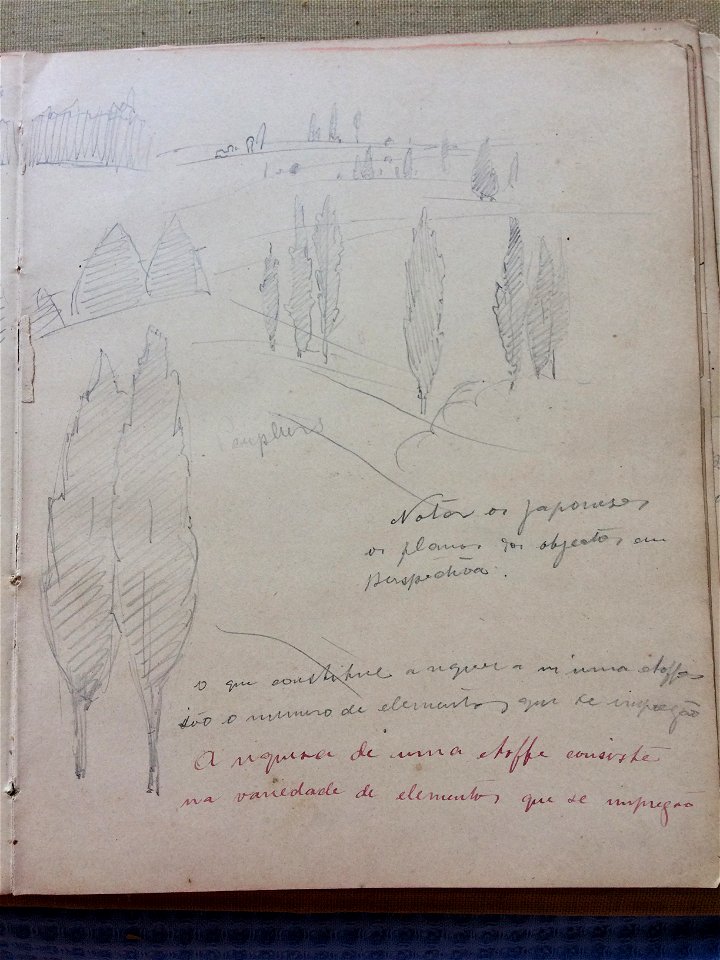 Peupliers
Notar os japoneses
os planos dos objectos em
perspectiva.
o que constitue a riquesa n'uma etoffe
são o numero de elementos que se impregão
A riquesa de uma etoffe consiste
na variedade de elementos que se impregão